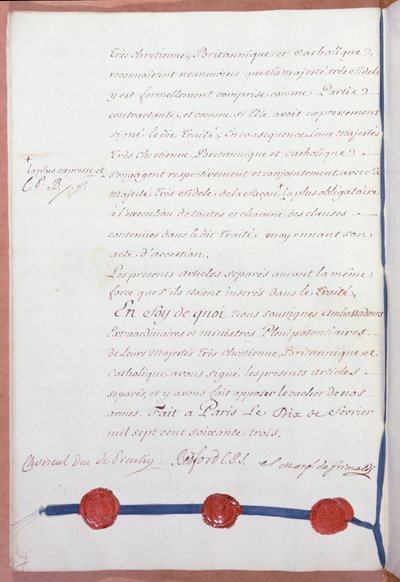 Très Chretienne, Britannique, et Catholique,
reconnoissent neanmoins que sa majesté très Fidele
y est formellement comprise comme Partie
contractante, et comme si Elle avoit expressement
signé le dit Traité; En consequence Leurs Majestés
Très Chretienne, Britannique et Catholique
s'engagent respectivement et conjointement, avec Sa
Majesté Très Fidele de la façon + la plus obligatoire
à l'execution de toutes et chacune des clauses
contenües dans le dit Traité, moyennant son
acte d'accession.
+ la plus expresse et
Les presents articles separés auront la même
force que s'ils étoient inserés dans le Traité.
En Foy de quoi, nous soussignés Ambassadeurs
Extraordinaires et ministres Plenipotentiaires
de Leurs Majestés Très Chretienne, Britannique et
Catholique avons signé les presents articles
separés, et y avons fait apposer le cachet de nos
armes. Fait à Paris Le Dix de Février
mil sept cent soixante trois.
Choiseul Duc de Praslin Bedford C.P.S. el marq.s de Grimaldi